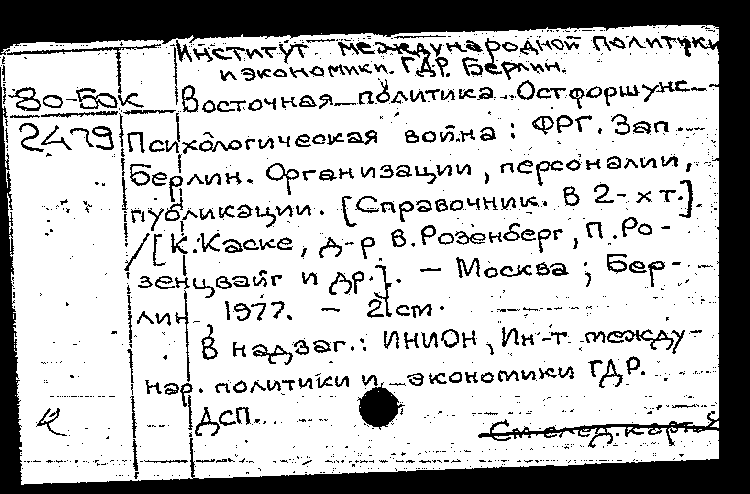 Институт международной политики
и экономики. ГДР. Берлин.
80-БОК Восточная политика Остфоршунс
2479 Психологическая война: ФРГ. Зап.
Берлин. Организации, персоналии,
публикации. [Справочник. В 2-х т.].
/[К. Каске, д-р В. Розенберг, П. Ро-
зенцвайг и др.]. — Москва; Бер-
лин, 1977. — 21 cm.
В надзаг.: ИНИОН, Ин-т между-
нар. политики и экономики ГДР.
ДСП.
См след. карт.